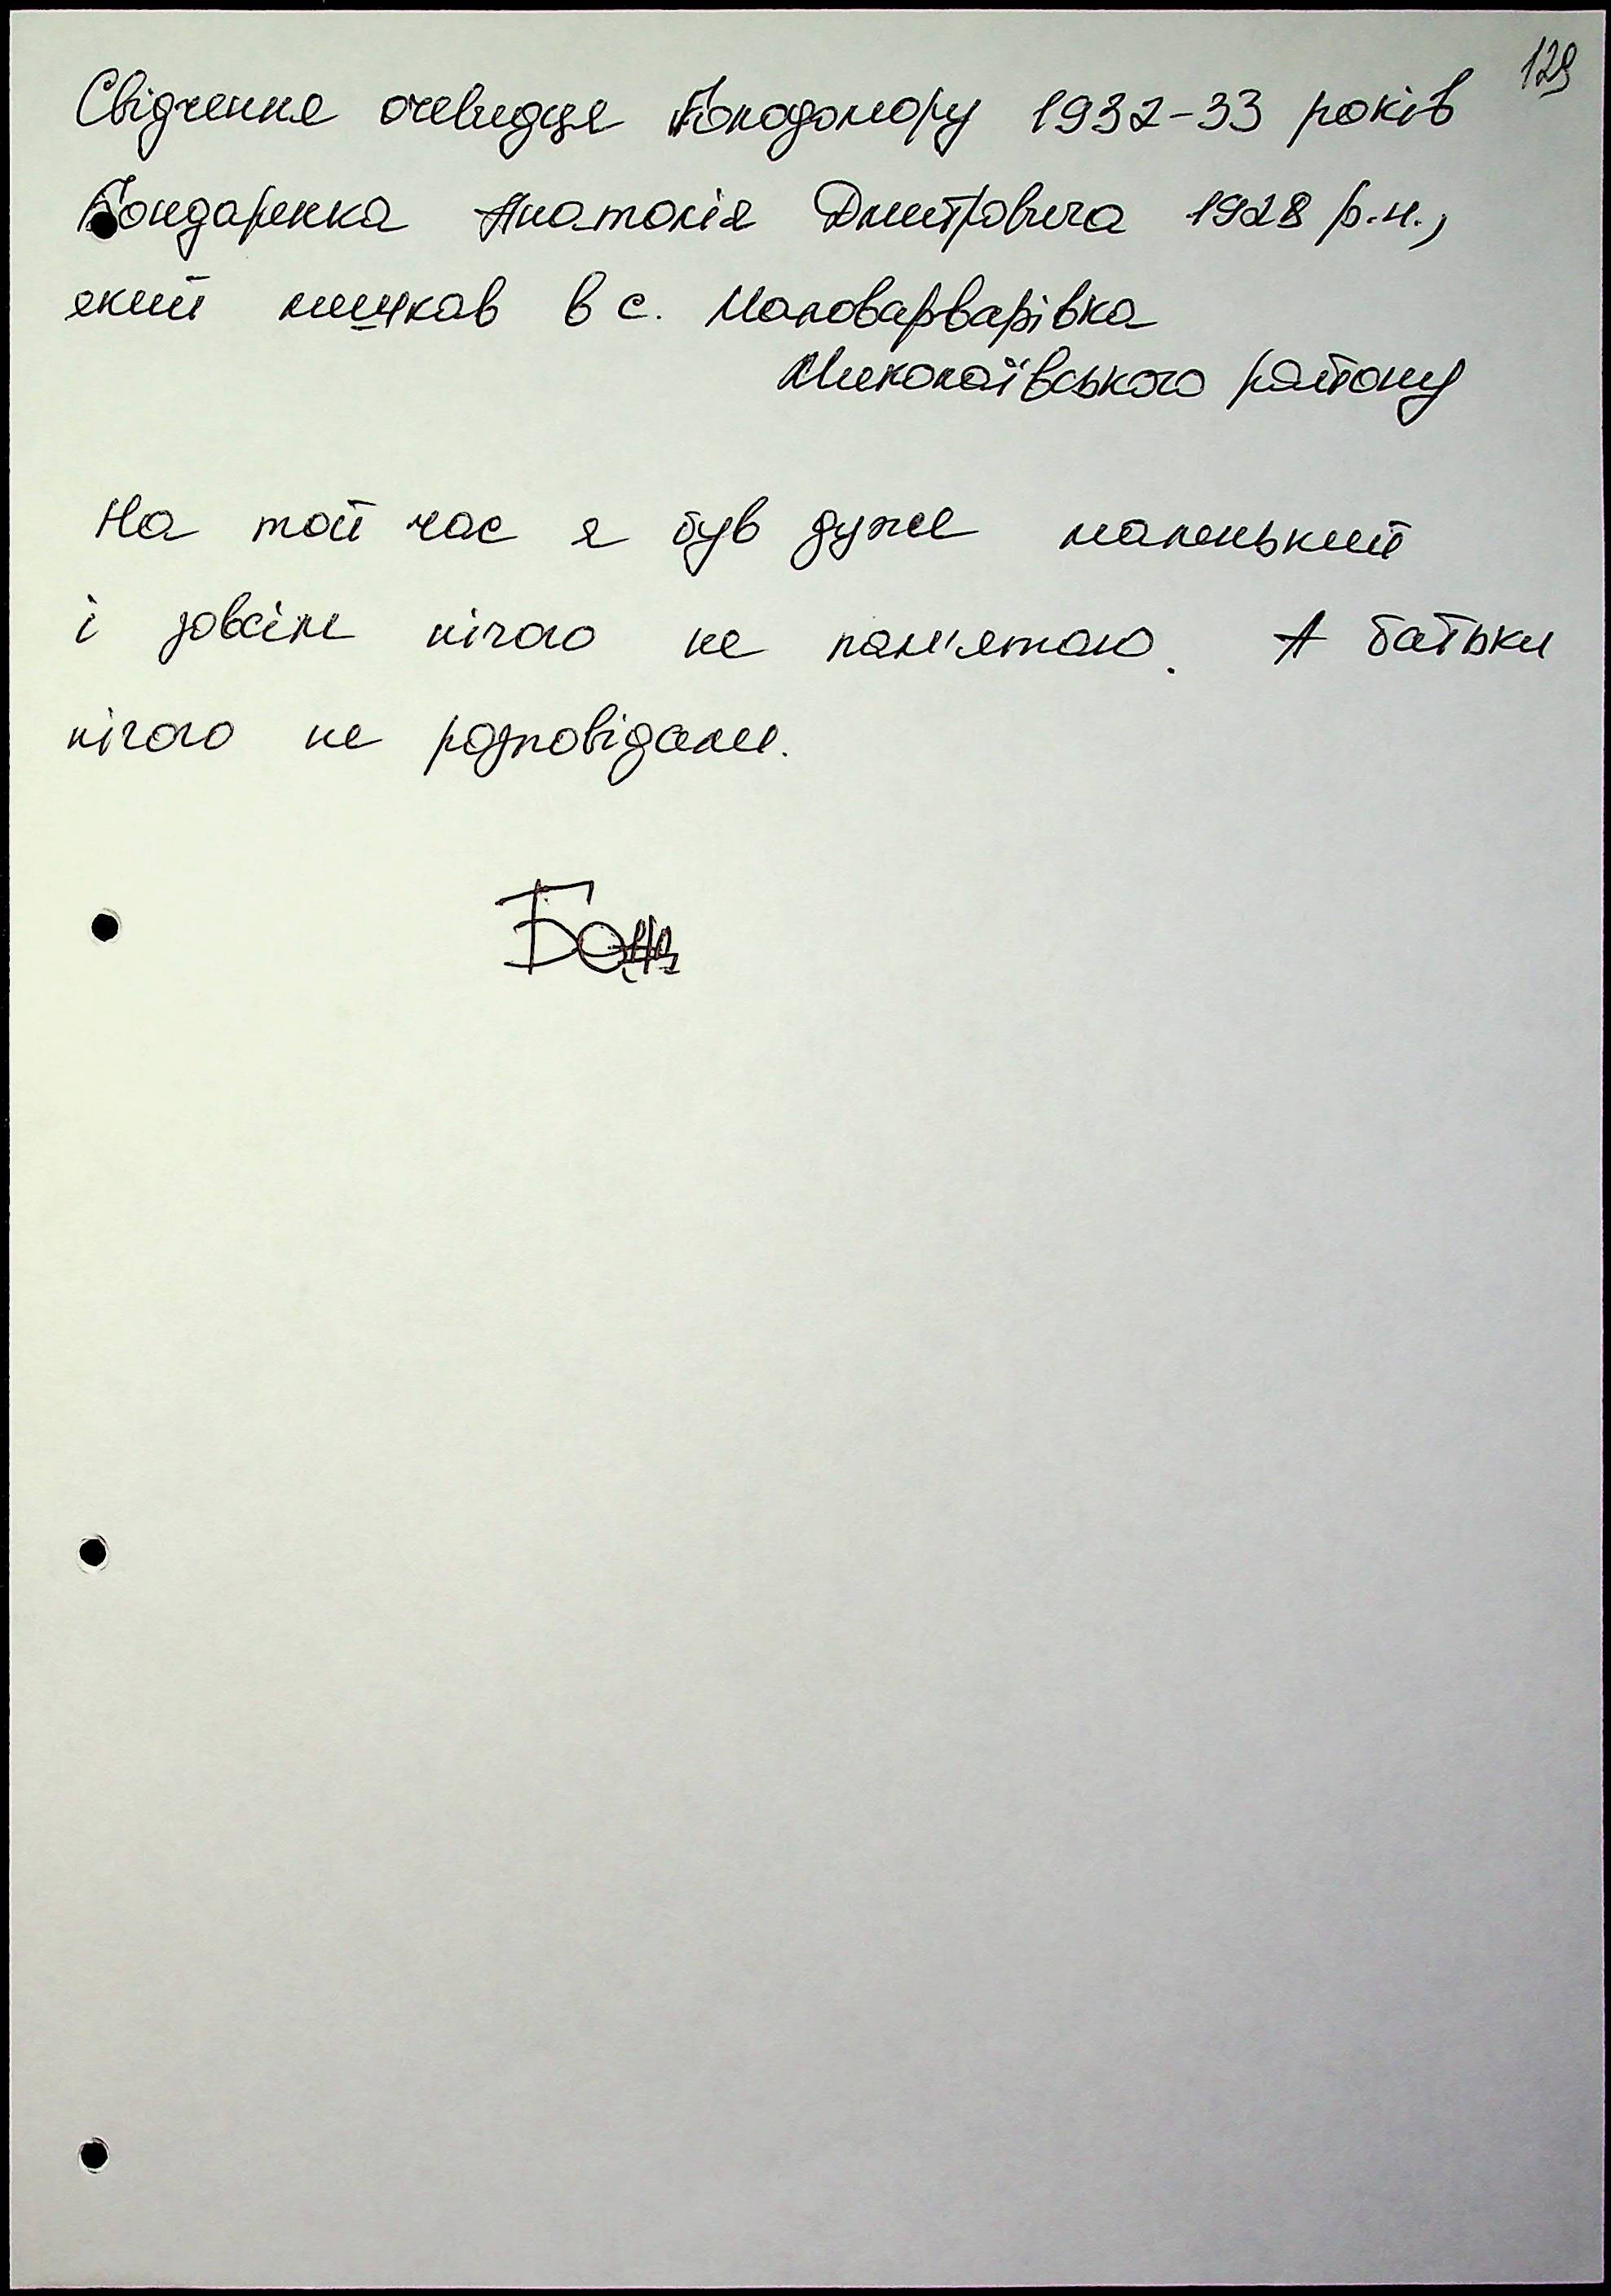 129
Свідчення очевидця Голодомору 1932-33 років
Бондаренка Анатолія Дмитровича 1928 р.н.,
який мешкав в с. Маловарварівка
Миколаївського району
На той час я був дуже маленький
і зовсім нічого не пам'ятаю. А батьки
нічого не розповідали.